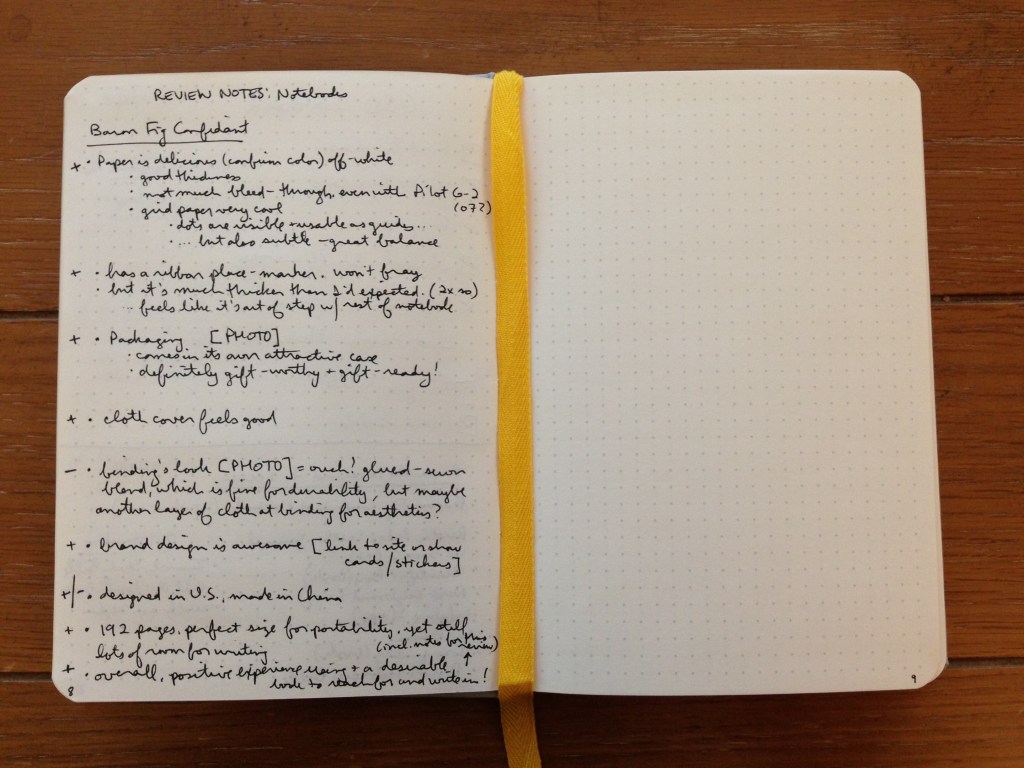 REVIEW NOTES: Notebooks
Baron Fig Confidant
+ • Paper is delicious (confirm color) off-white
• good thickness
• not much bleed-through, even with Pilot G-2
• grid paper very cool (07?)
• dots are visible + usable as guides...
• ... but also subtle - great balance
+ • has a ribbon place-marker. won't fray
• but it's much thicker than I'd expected. (2x so)
... feels like it's out of step w/ rest of notebook
+ • Packaging [PHOTO]
• comes in its own attractive case
• definitely gift-worthy + gift-ready!
+ • cloth cover feels good
- • binding's look [PHOTO] = ouch! glued-sewn
blend, which is fine for durability, but maybe
another layer of cloth at binding for aesthetics?
+ • brand design is awesome [link to site or show
cards/stickers]
+/- • designed in U.S., made in China
+ • 192 pages. perfect size for portability, yet still
lots of room for writing (incl. notes for this review)
+ • overall, positive experience using + a desirable
book to reach for and write in!
8
9